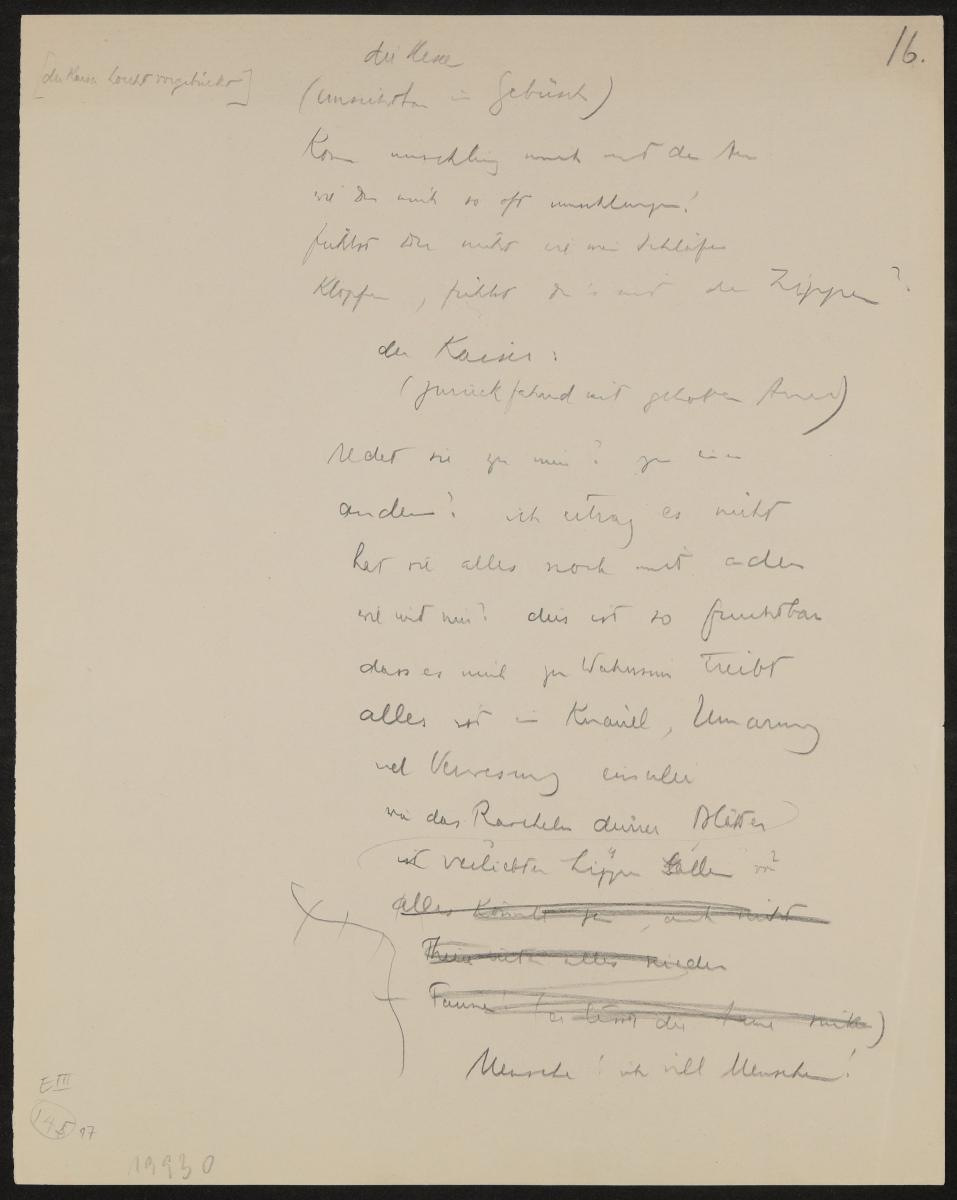 16.
die Hexe
[der Kaiser horcht vorgebückt]
(unsichtbar im Gebüsch)
Komm umschling mich mit den Armen
wie Du mich so oft umschlungen!
fühlst Du nicht wie mein Schläfen
Klopfen, fühlst du's mit den Lippen?
der Kaiser:
(zurückfahrend mit gehobenen Armen)
Redet sie zu mir? zu einem
andern? ich ertrag es nicht
hat sie alles noch mit andern
wie mit mir? dies ist so furchtbar
dass es mich zu Wahnsinn treibt
alles ist ein Knäuel, Umarmung
und Verwesung einerlei
von das Rascheln deiner Blätter
ist verliebten Lippen Lallen
alles könnte ja, auch nicht
alles wieder
Menschen! ich will Menschen!
E III
145 97
19930